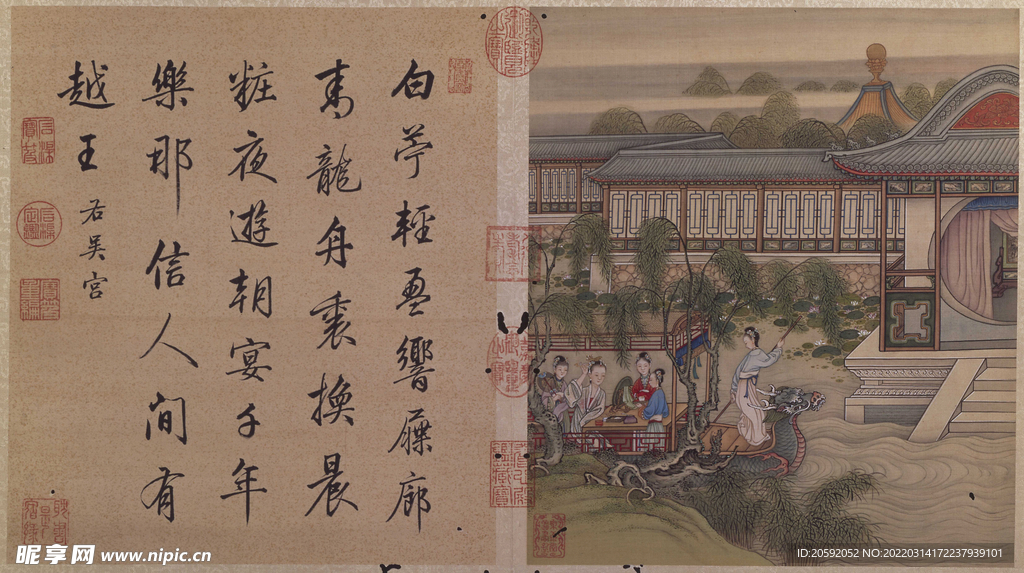 白苧輕盈響屧廊
青龍舟裏換晨
粧夜遊朝宴千年
樂那信人間有
越王
右吳宮
昵享网 www.nipic.cn
ID:20592052 NO:20220314172237939101